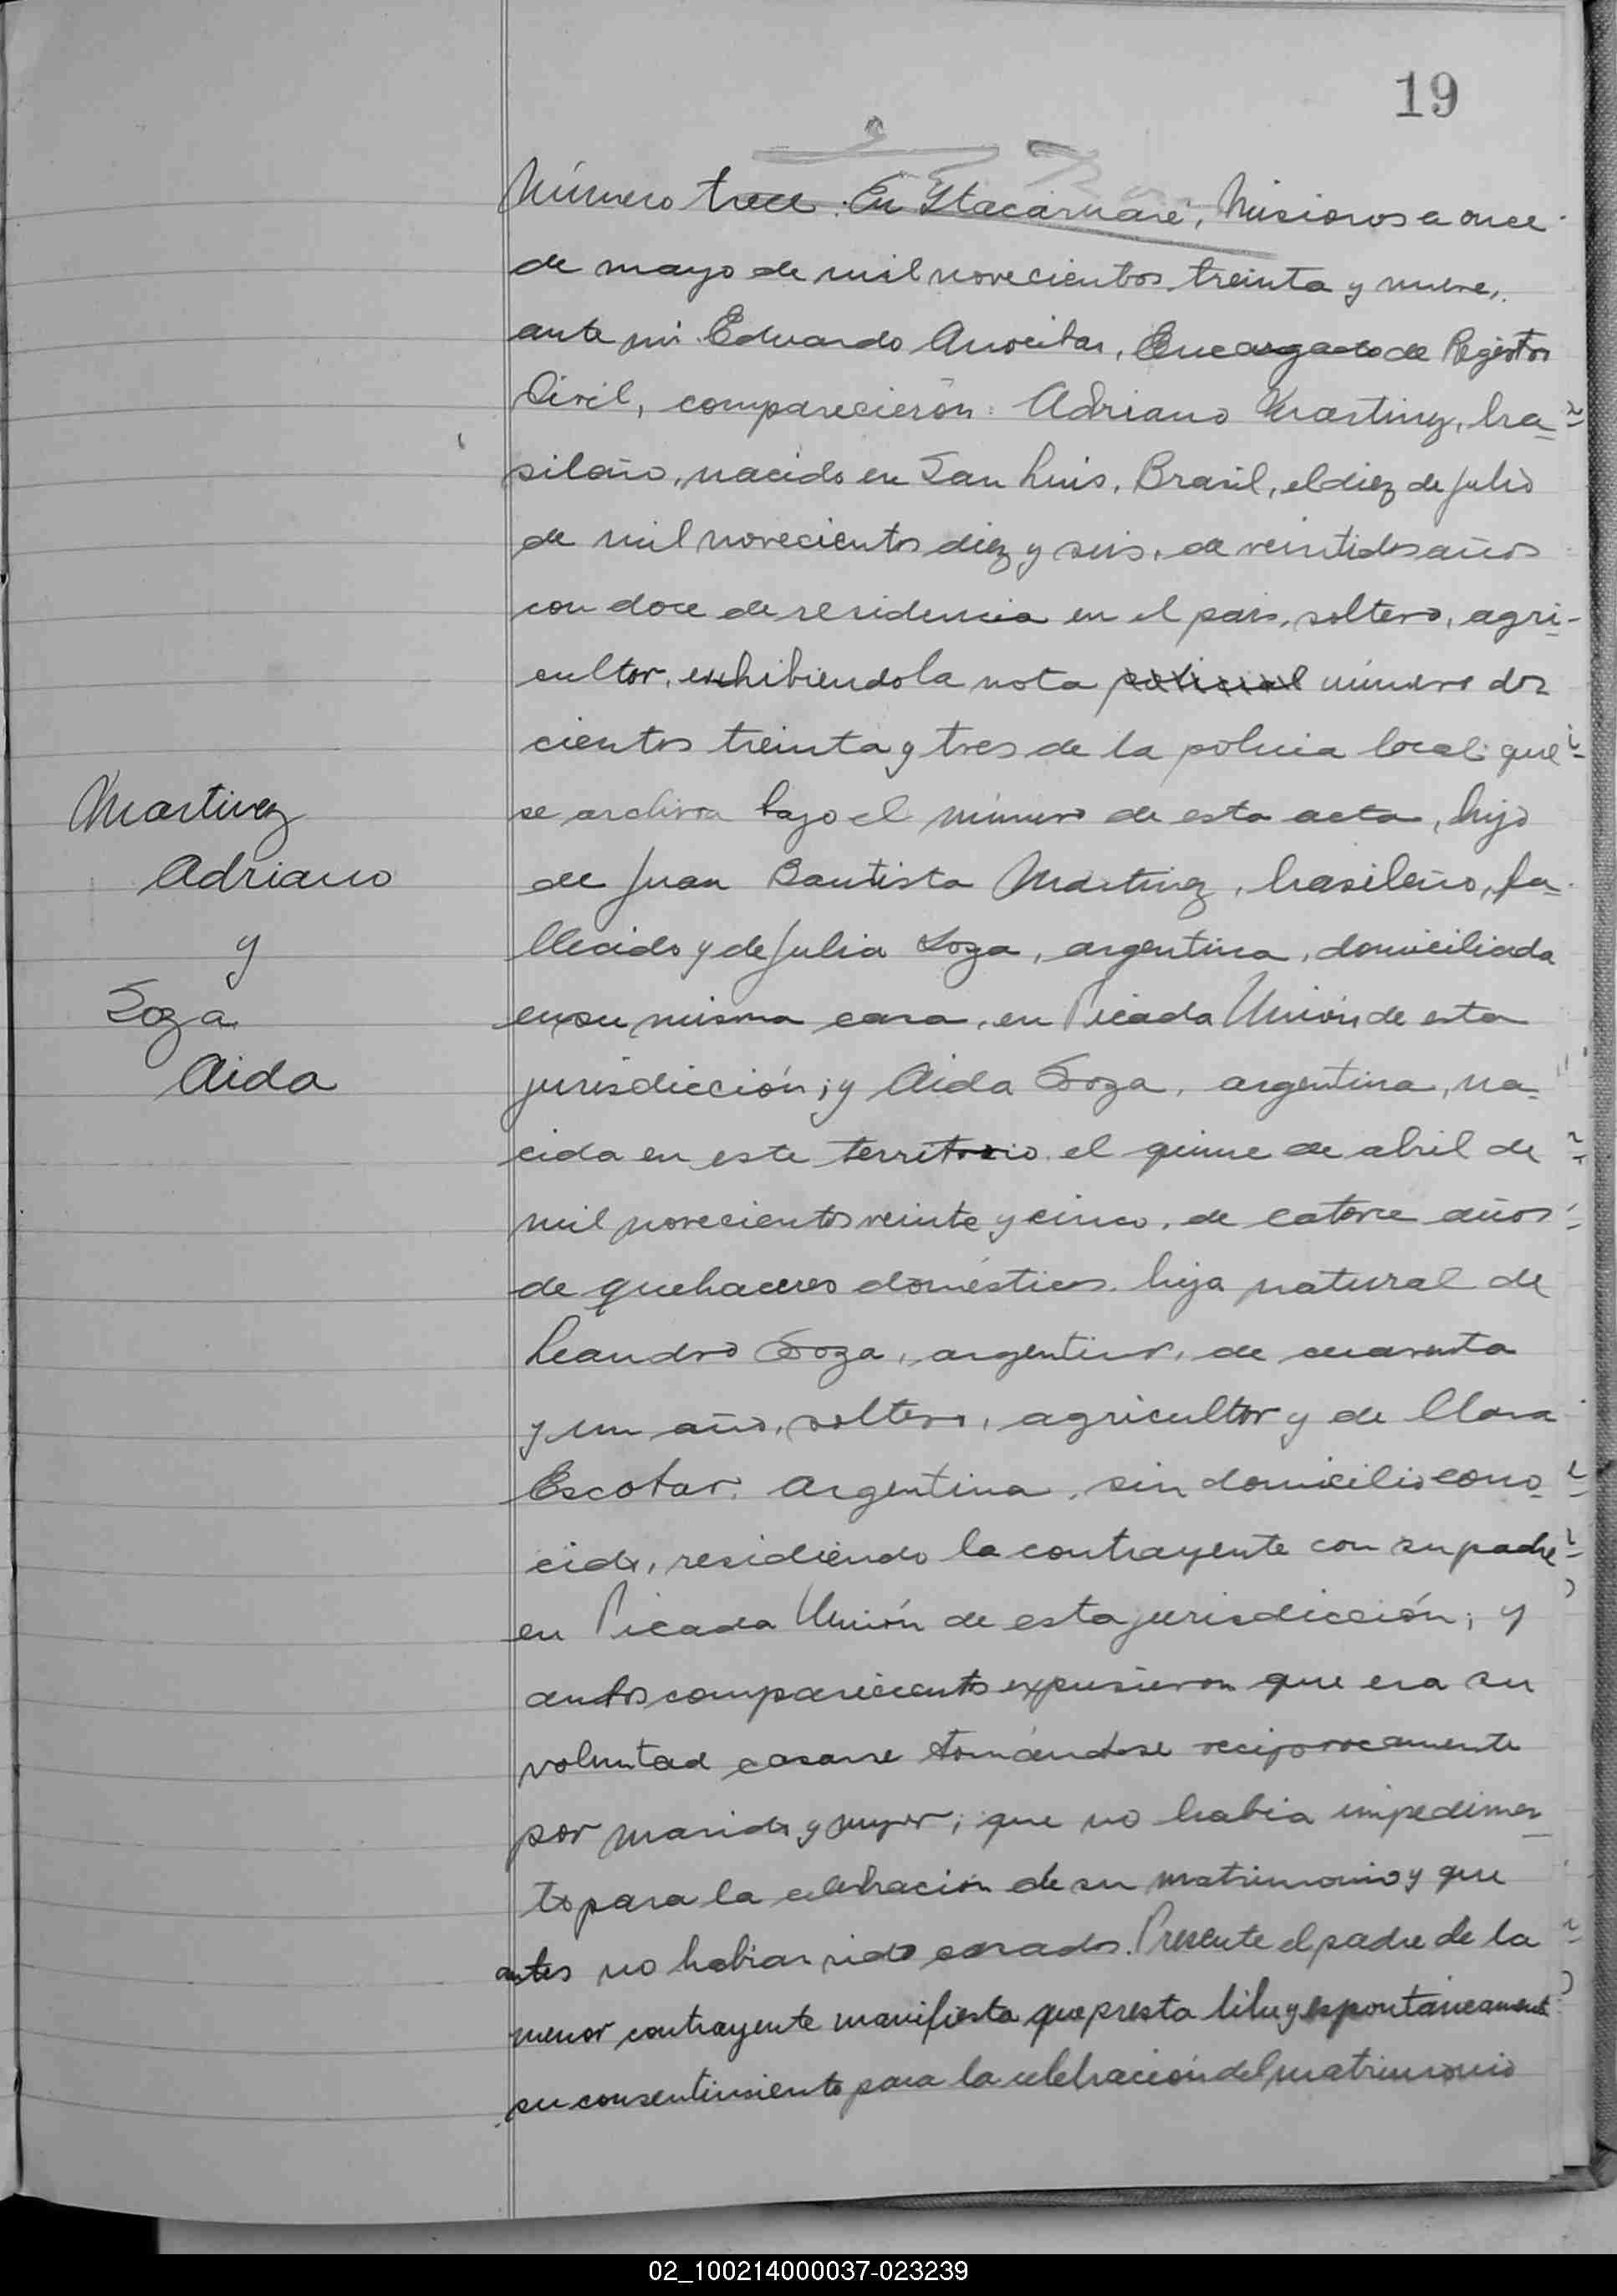 19
Número trece. En Itacaruaré, Misiones a once
de mayo de mil novecientos treinta y nueve,
ante mi Eduardo Encargado de Registro
Civil, comparecierón: Adriano Martinez, bra=
sileño, nacido en San Luis, Brasil, el diez de julio
de mil novecientos diez y seis, de veintidos años
con doce de residencia en el pais, soltero, agri-
cultor, exhibiendo la nota policial número dos
cientos treinta y tres de la policia local que
se archiva bajo el número de esta acta, hijo
de Juan Bautista Martinez, brasileño, fa=
llecido y de Julia Soza, argentina, domiciliada
en su misma casa, en Picada Unión de esta
jurisdicción; y Aida Soza, argentina, na=
cida en este territorio el quince de abril de
mil novecientos veinte y cinco, de catorce años
de quehaceres domésticos, hija natural de
Leandro Soza, argentino, de cuarenta
y un año, soltero, agricultor y de Clara
Escobar, Argentina, sin domicilio cono=
cido, residiendo la contrayente con su padre
en Picada Unión de esta jurisdicción; y
ambos comparecientes expusieron que era su
voluntad casarse tomándose reciprocamente
por marido y mujer; que no habia impedimen=
to para la celebración de su matrimonio y que
antes no habian sido casados. Presente el padre de la
menor contrayente manifiesta que presta libre y espontáneamente
su consentimiento para la celebración del matrimonio
Martinez
Adriano
y
Soza
Aida
02_100214000037-023239